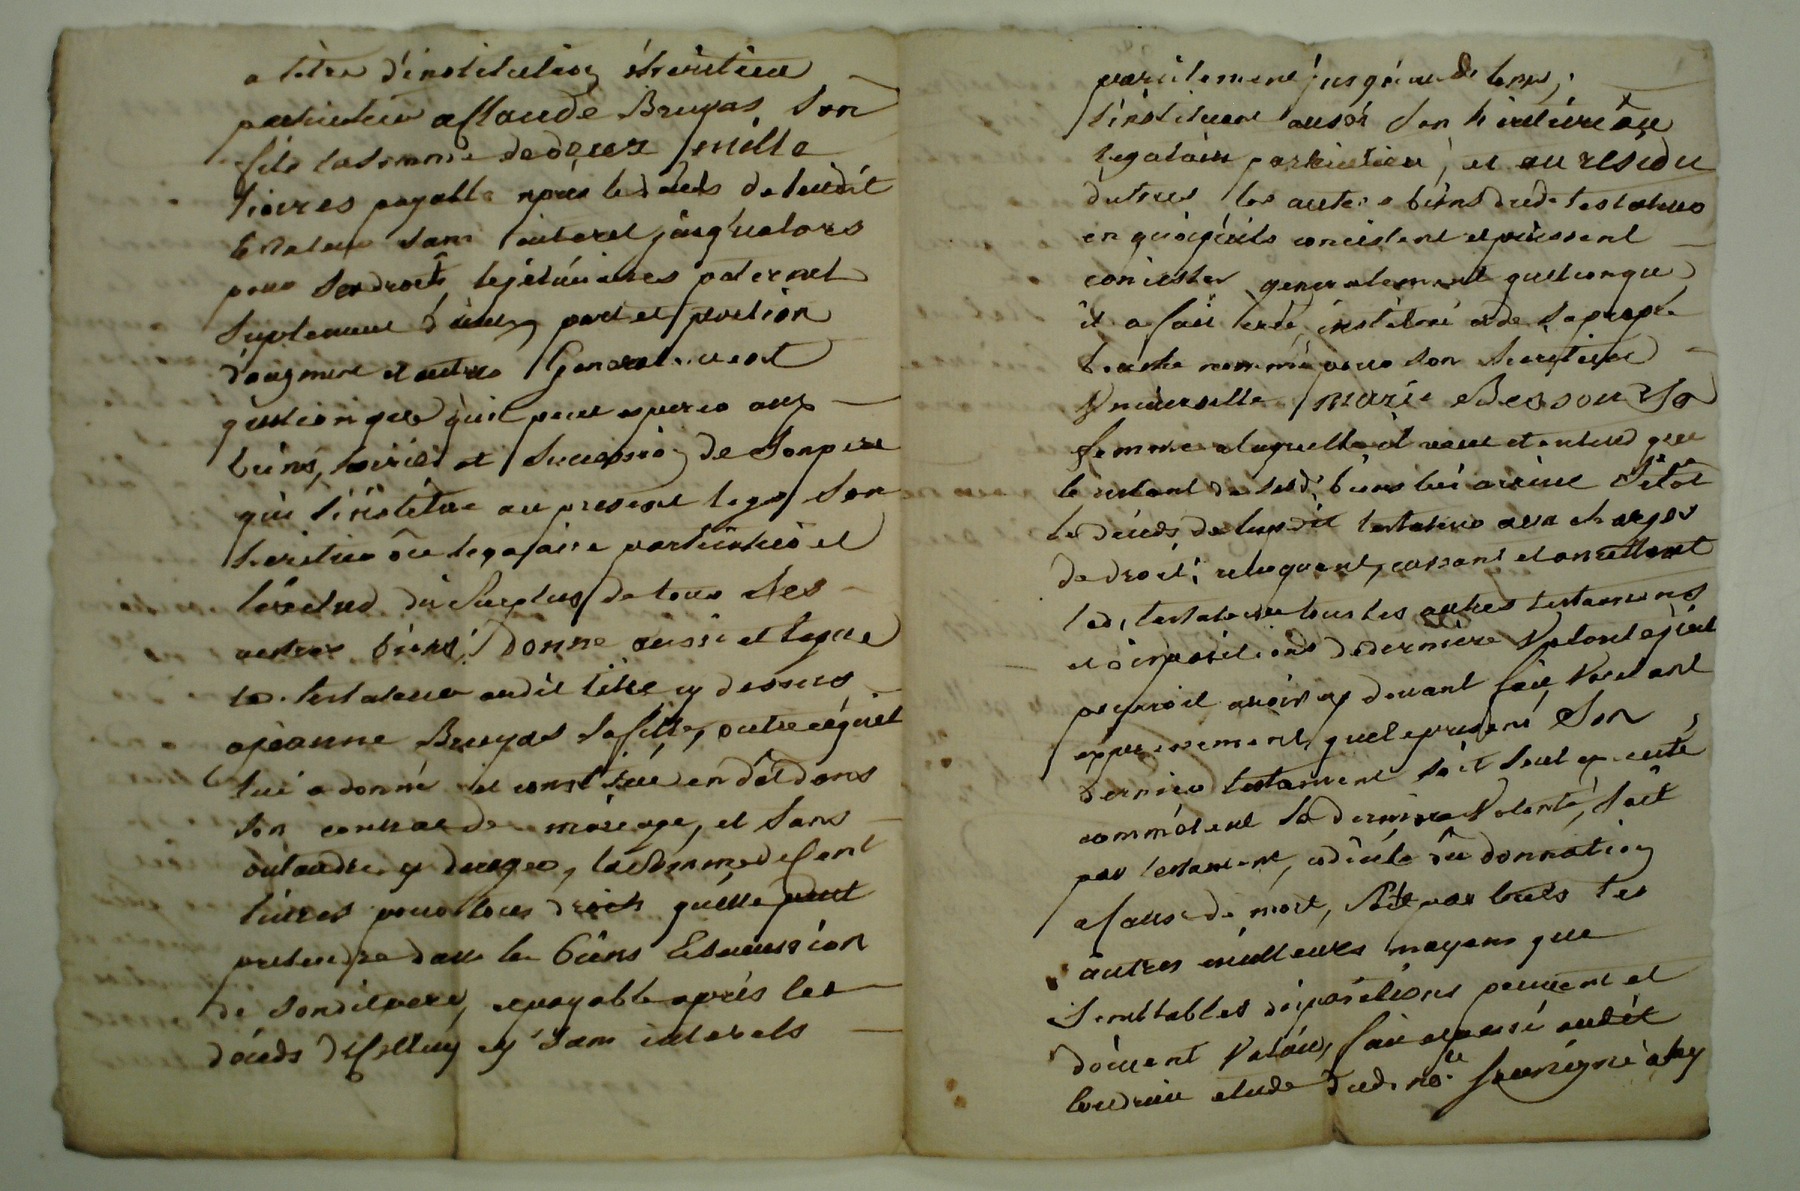 a titre d'institution héreditaire
particuliere a Claude Bruyas son
fils la somme de deux mille
livres payable après le décès de luidit
testateur sans interet jusqu'alors
pour ses droits légitimaires paternel
suplement d'iceux part et portion
d'augment et autres Generalement
quelconques qu'il peut esperer aux
biens, hoirie et succession de son père
qui l'institue au present legs son
heritier ôu legataire particulier et
l'exclud du surplus de tous ses
autres biens; donne aussi et legue
le testateur audit titre cy dessus
a jeanne Bruyas sa fille, outre cequ'il
lui a donné et constitué en dôt dans
son contrat de mariage, et sans
entendre y deroger, la somme de cent
livres pour tous droits qu'elle peut
pretendre dans les biens et succession
de sondit pere, payable après les
décès d'icelluy et sans interets
pareilement jusqu'au de tems,
l'instituant aussi son héritière ôu
legataire particuliere, et au residu
de tous les autres biens dud. testateur
en quoiqu'ils consistent et puissent
consister generalement quelconque
il a fait, institué et de sa propre
bouche nommé pour son heritiere
Universelle marie Besson sa
femme a laquelle il veut et entend que
le restant de sesd. biens lui arrive sitôt
le décès de luidit testateur aux charges
de droit; revoquant, cassant et annullant
led. testateur tous les autres testaments
et dispositions de derniere volonté qu'il
pourroit avoir cy devant fait, voulant
expressement que le present son
dernier testament soit seul executé
comme étant sa derniere volonté, soit
par testament, codicile ôu donnation
a cause de mort, soit par touts les
autres meilleurs moyens que
semblables dispositions peuvent et
doivent valoir, fait et passé audit
etude dud. no.re soussigné a